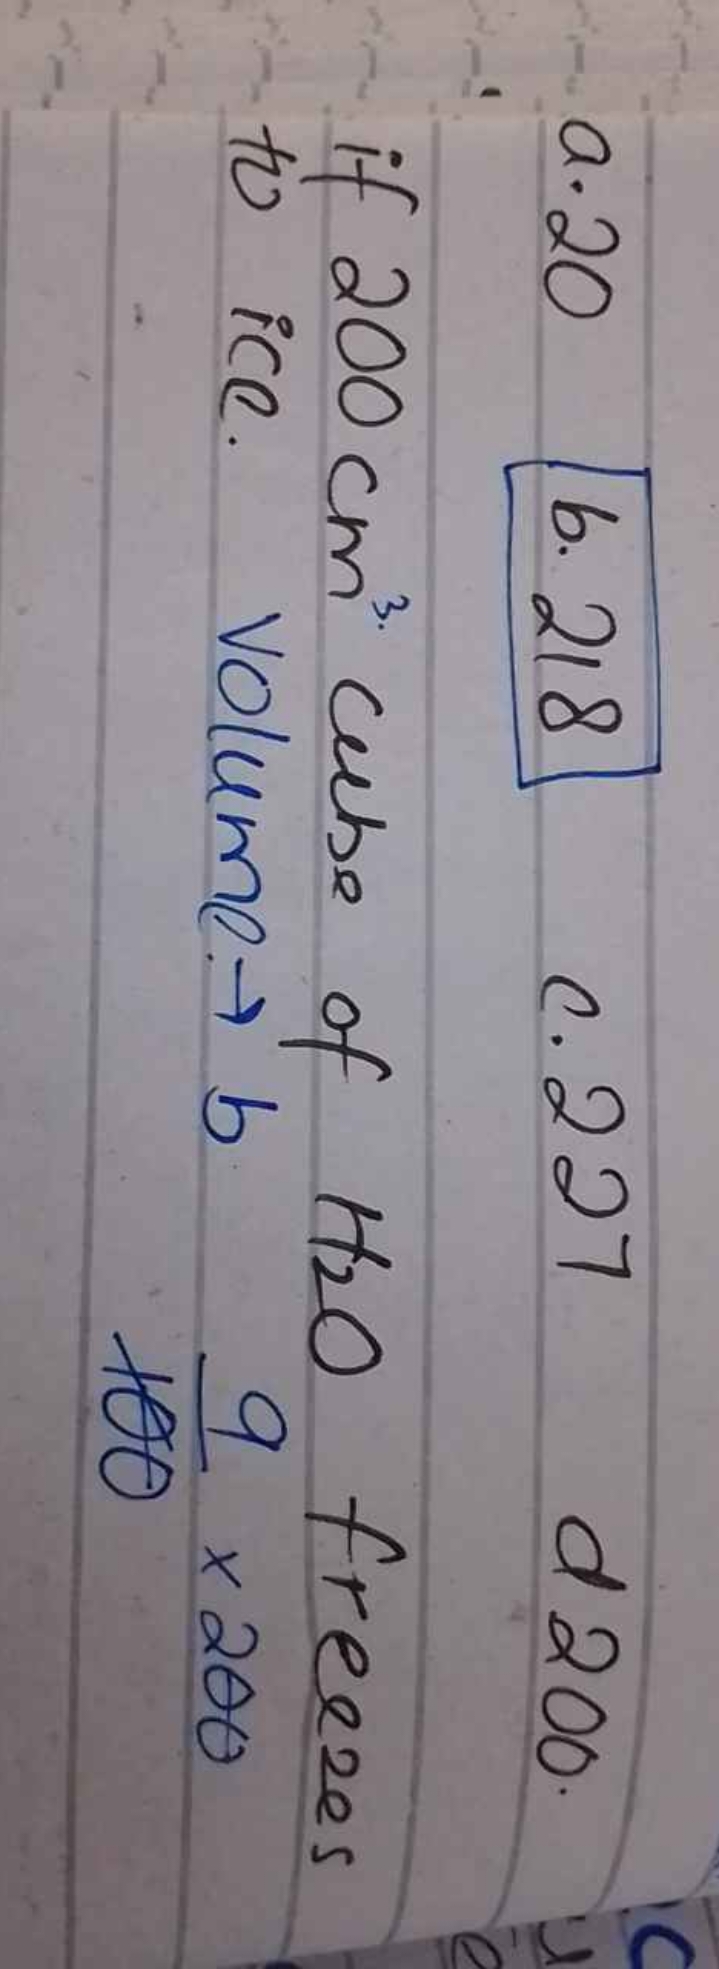 a. 20 b. 218 c. 227 d 200.
if 200 cm³. cube of H₂O freezes
to ice. Volume. → b 9/100 x 200